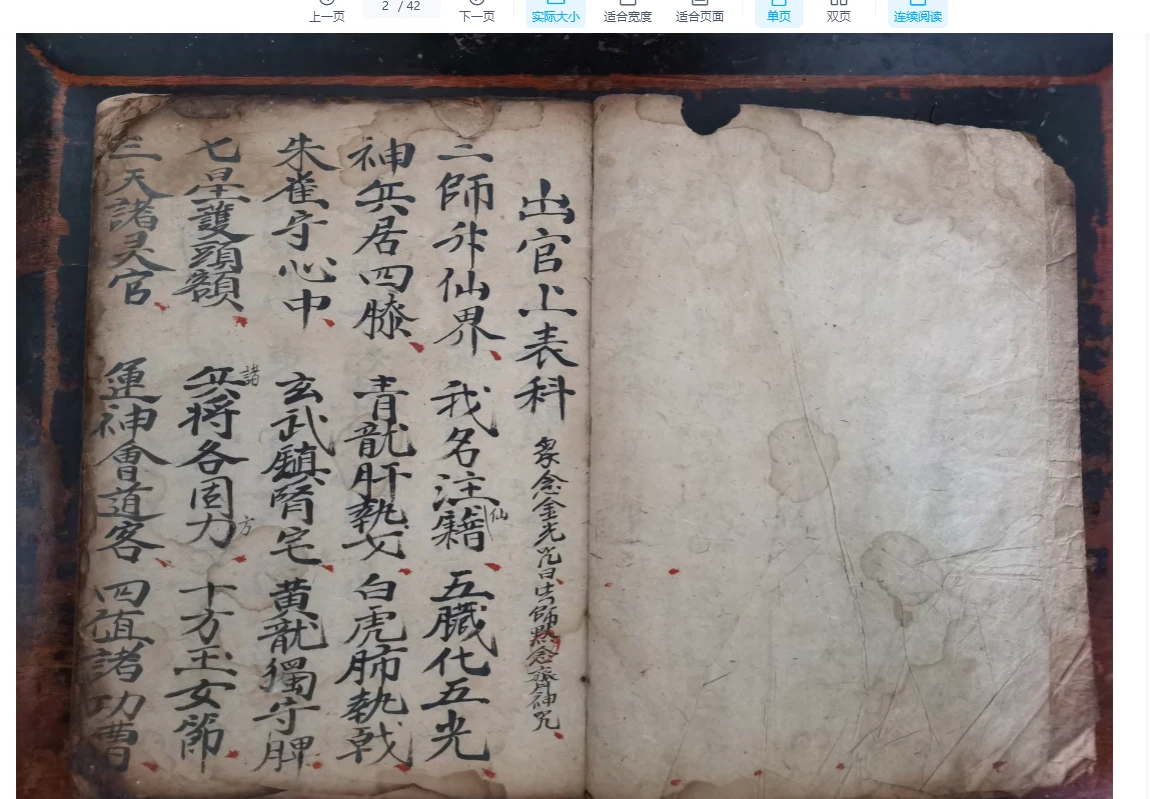 上一页
2 / 42
下一页
实际大小
适合宽度
适合页面
单页
双页
连续阅读
出官上表科 众念金光咒曰法師黙念齋神咒
二師升仙界 我名注仙籍 五臟化五光
神兵居四膝 青龍肝執戈 白虎肺執戟
朱雀守心中 玄武鎮腎宅 黄龍獨守脾
七星護頭額 諸兵将各固方力 十方玉女節
三天諸灵官 運神會道客 四值諸功曹